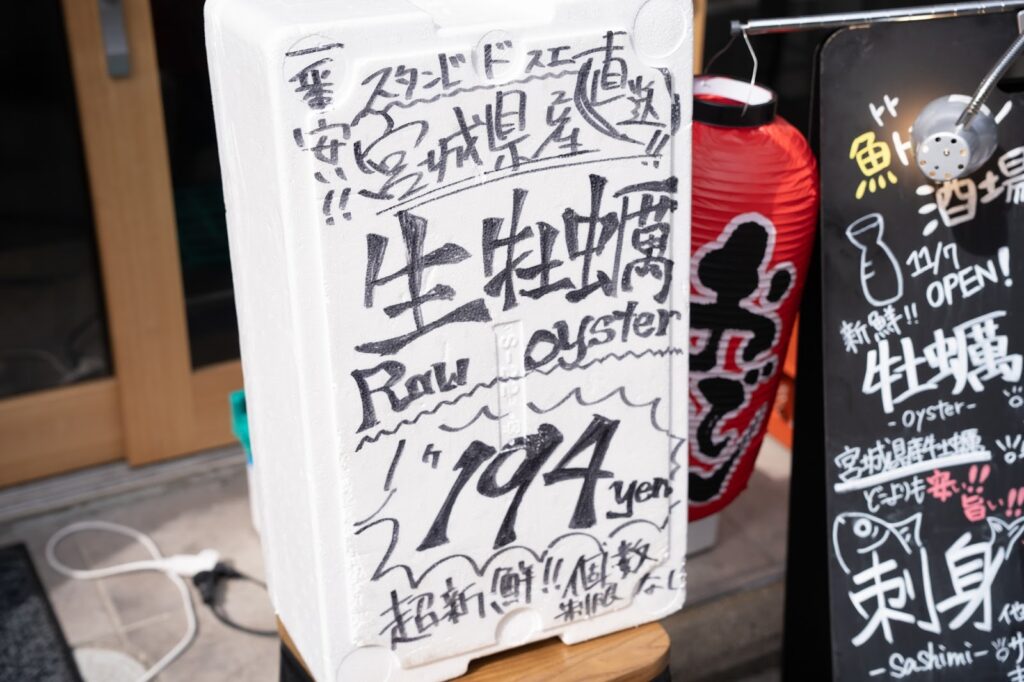 一番安!!
スタンド
直送!!
宮城県産
生牡蠣
Raw oyster
1ヶ 194 yen
超新鮮!! 個数制限なし
魚
酒場
11/7
OPEN!
新鮮!!
牡蠣
-oyster-
宮城県産牡蠣
どこよりも安い!! 旨い!!
刺身
-sashimi-